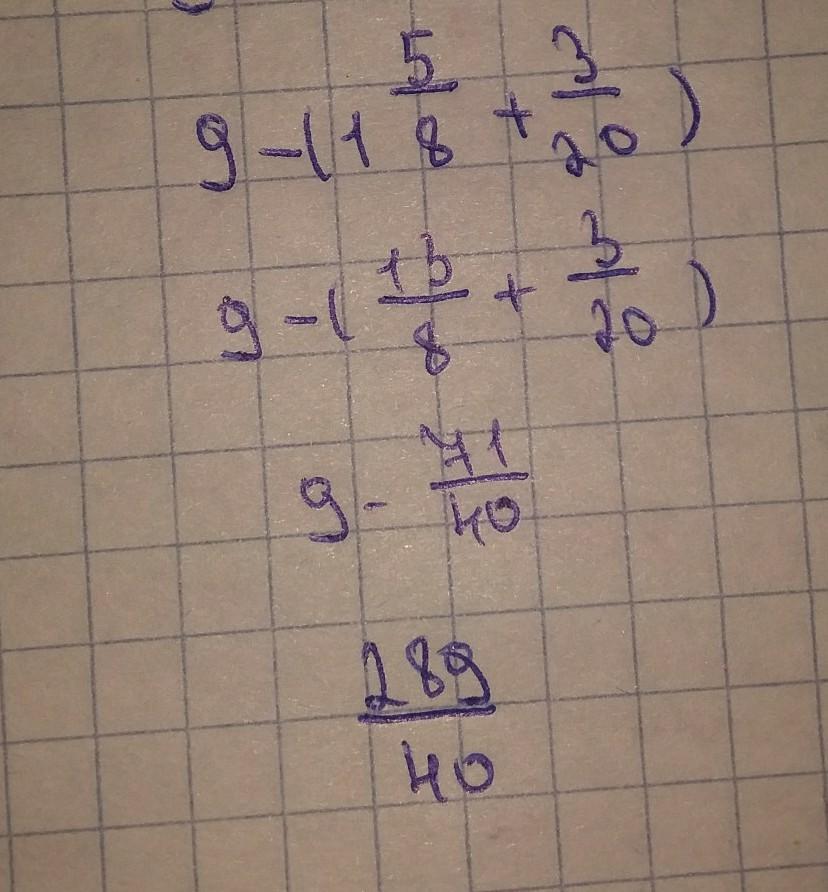 9 - (1 5/8 + 3/20)
9 - (13/8 + 3/20)
9 - 71/40
289/40